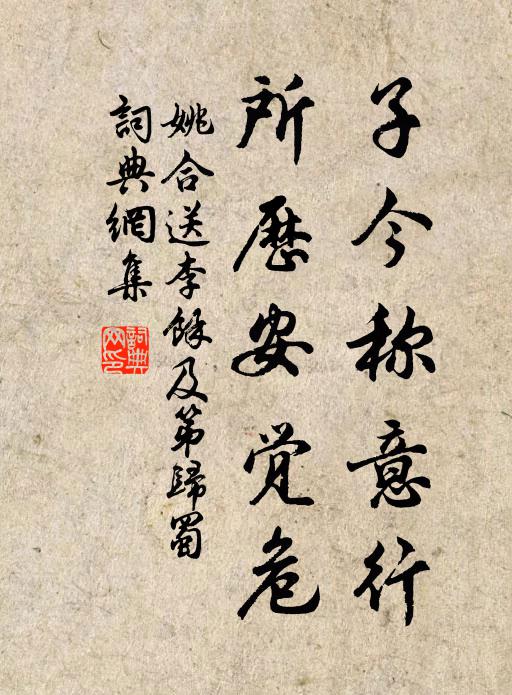 子今称意行
所歷安觉危
姚合送李餘及第歸蜀
詞典網集
詞典網印